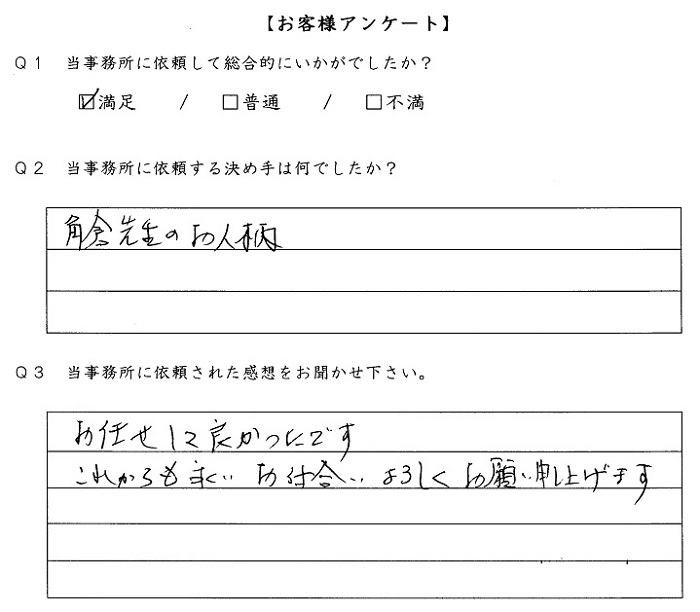 【お客様アンケート】
Q1 当事務所に依頼して総合的にいかがでしたか？
☑満足 / □普通 / □不満
Q2 当事務所に依頼する決め手は何でしたか？
角倉先生のお人柄
Q3 当事務所に依頼された感想をお聞かせ下さい。
お任せして良かったです
これからも永いお付合いよろしくお願い申し上げます